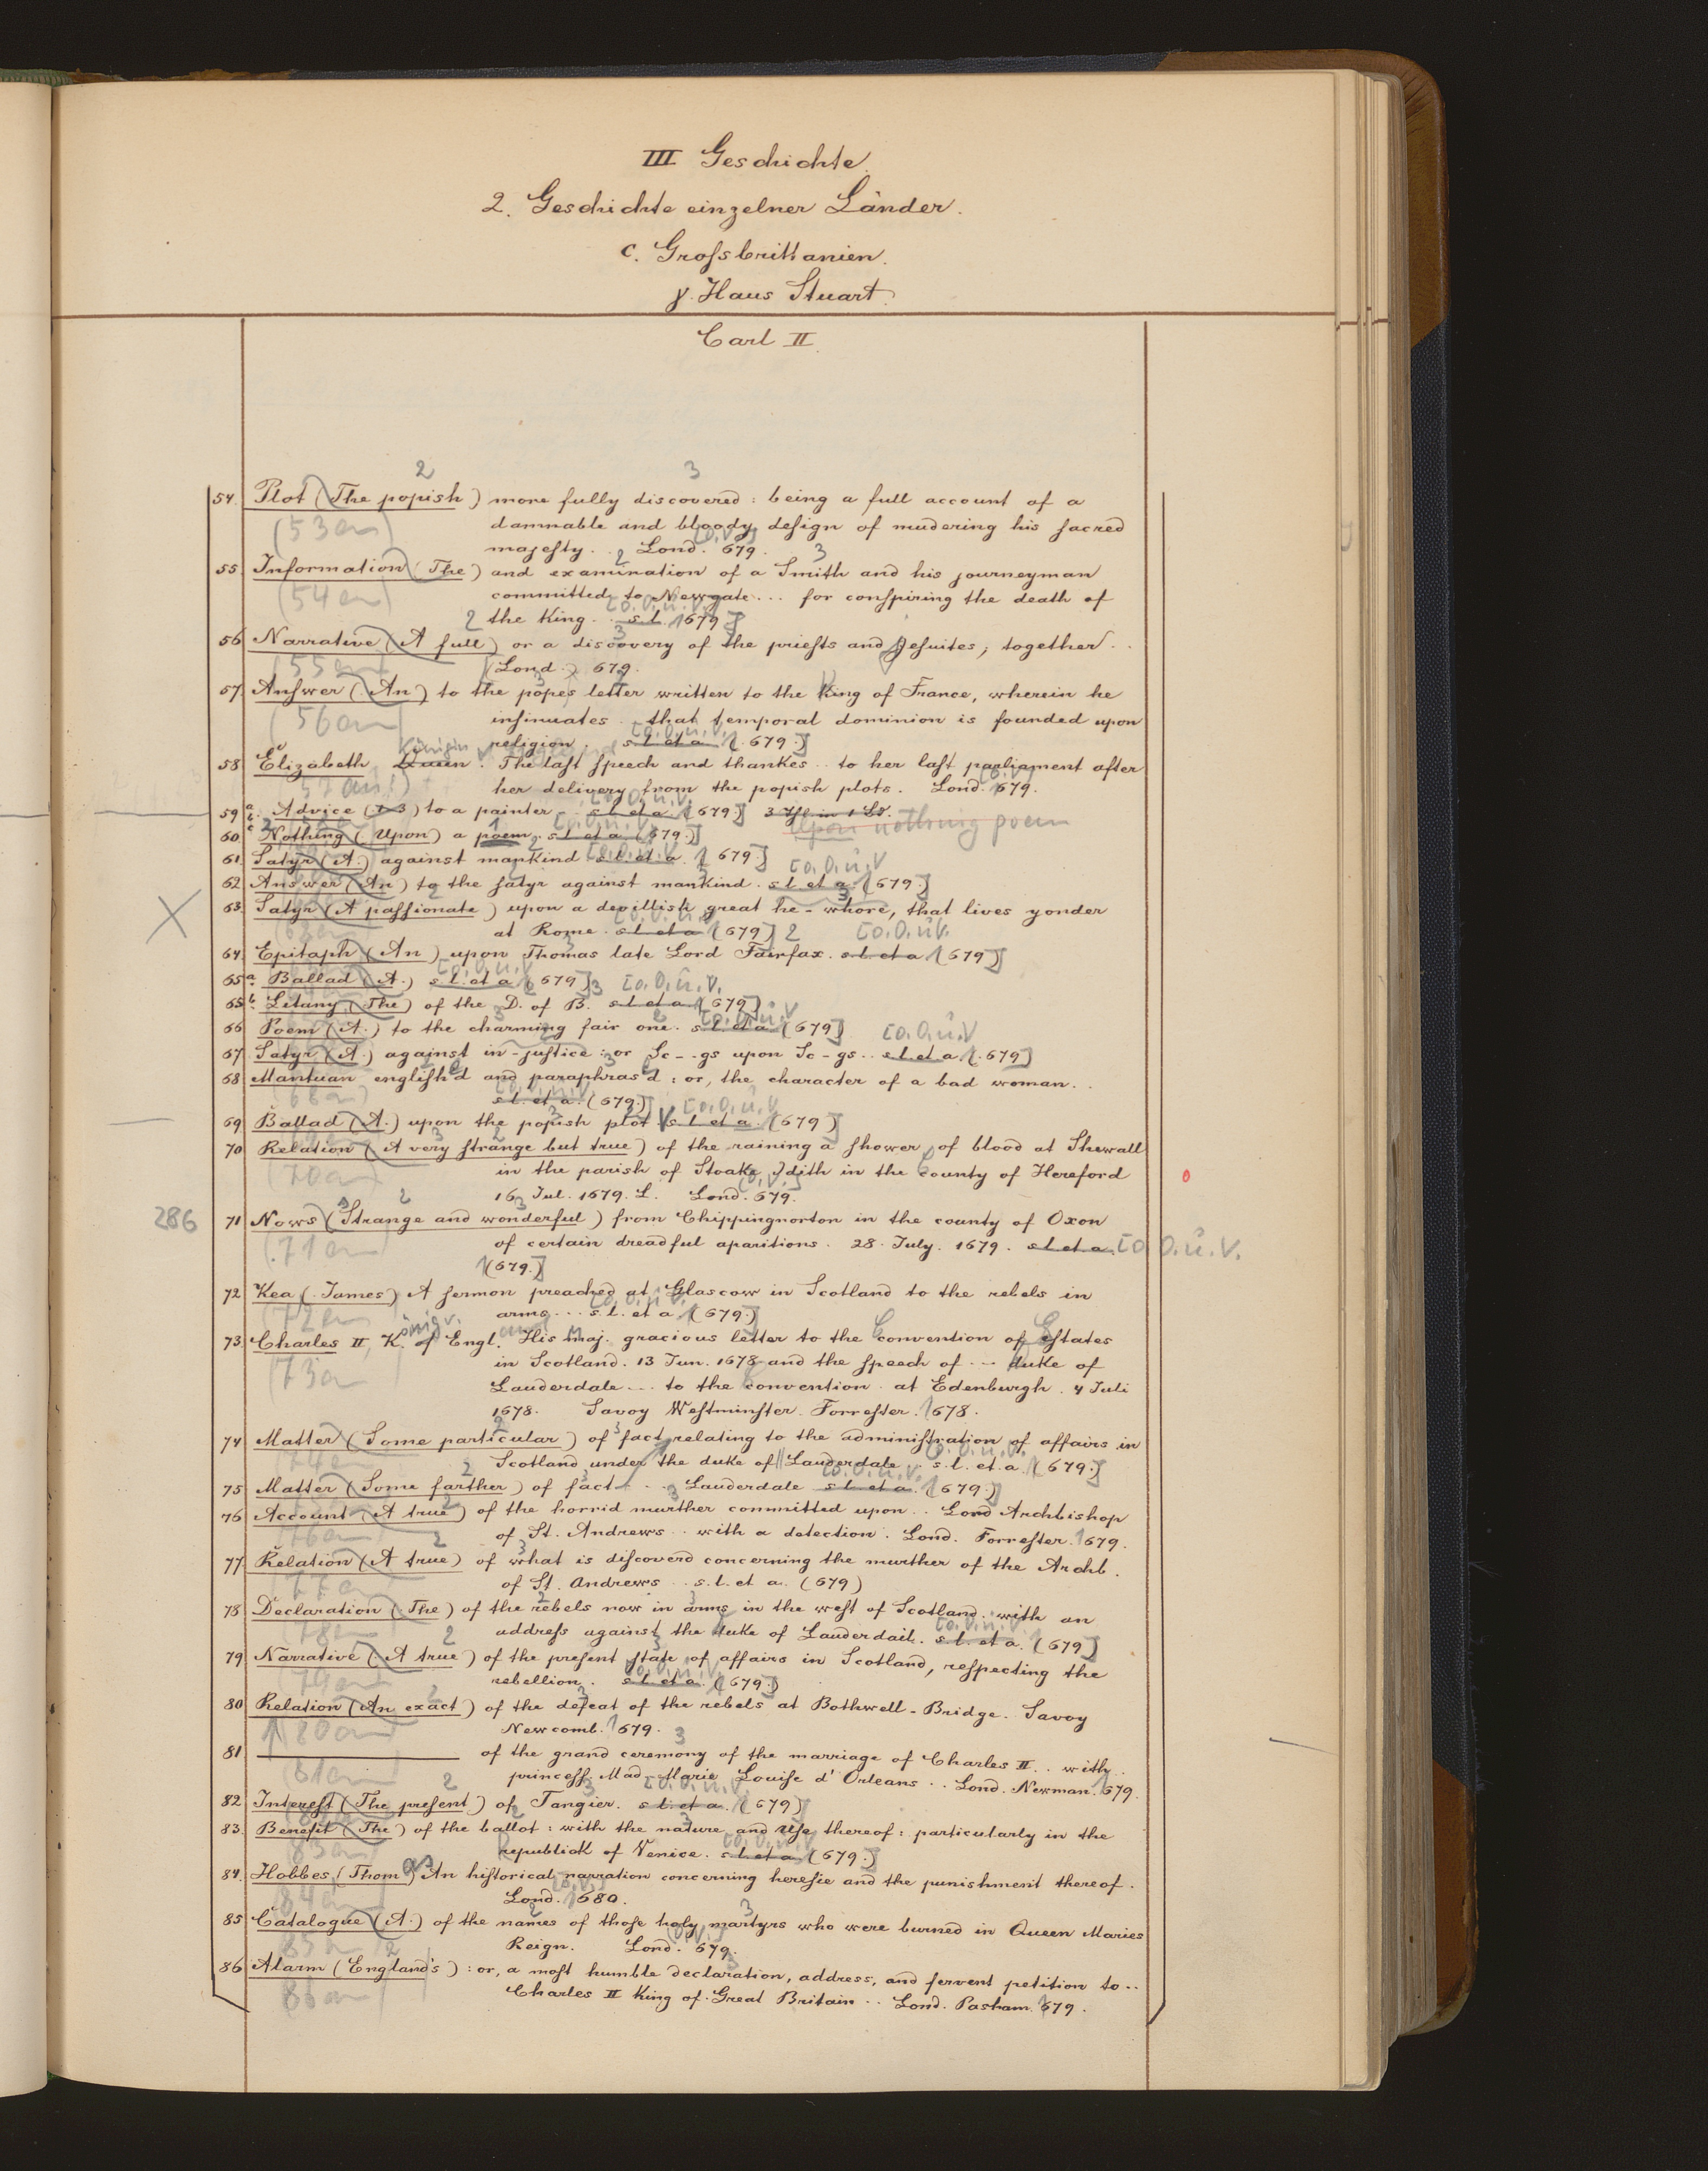 III Geschichte.
2. Geschichte einzelner Länder.
c. Grossbrittanien.
γ. Haus Stuart.
Carl II.
54. Plot (The popish) more fully discovered: being a full account of a
(53an)
damnable and bloody design of mudering his sacred
majesty.. Lond. 679.
55 Information (The) and examination of a Smith and his journeyman
(54an)
committed to Newgate... for conspiring the death of
the King.. s.l. 1679
56 Narrative (A full) or a discovery of the priests and Jesuites, together..
(55an)
(Lond.) 679.
57. Answer (An) to the popes letter written to the King of France, wherein he
(56an)
insinuates.. that temporal dominion is founded upon
religion. s.l. et a. (679.)
58 Elizabeth, Queen. The last speech and thankes.. to her last parliament after
her delivery from the popish plots. Lond. 679.
59 a. Advice (1-3) to a painter.. s.l. et a. (679.) 3 Thl. in 1 Bd.
60. Nothing (Upon) a poem. s.l. et a. (679.) Upon nothing poem
61. Satyr (A.) against mankind s.l. et a. (679.)
62 Answer (An) to the satyr against mankind. s.l. et a. (679.)
63. Satyr (A passionate) upon a devillish great he-whore, that lives yonder
at Rome. s.l. et a. (679)
64. Epitaph (An) upon Thomas late Lord Fairfax. s.l. et a. (679)
65 a. Ballad (A.) s.l. et a. (679)
65 b. Litany (The) of the D. of B. s.l. et a. (679.)
66 Poem (A.) to the charming fair one. s.l. et a. (679)
67 Satyr (A.) against in-justice: or Sc--gs upon Sc-gs.. s.l. et a. (679)
68 Mantuan english'd and paraphras'd: or, the character of a bad woman..
s.l. et a. (679.)
69 Ballad (A.) upon the popish plot s.l. et a. (679)
70 Relation (A very strange but true) of the raining a shower of blood at Shewall
(70an)
in the parish of Stoake, Edith in the county of Hereford
16 Jul. 1679. L. Lond. 679.
286
71 News (Strange and wonderful) from Chippingnorton in the county of Oxon
(71an)
of certain dreadful aparitions. 28. July. 1679. s.l. et a. [o.O.u.V.
(679.)
72 Kea (James) A sermon preached at Glascow in Scotland to the rebels in
(72an)
arms... s.l. et a. (679.)
73. Charles II, K. of Engl. His maj. gracious letter to the convention of estates
(73an)
in Scotland. 13 Jun. 1678 and the speech of... duke of
Lauderdale... to the convention at Edenburgh. 4 Juli
1678. Savoy Westminster. Forrester. 1678.
74 Matter (Some particular) of fact relating to the administration of affairs in
Scotland under the duke of Lauderdale.. s.l. et. a. (679.)
75 Matter (Some farther) of fact... Lauderdale s.l. et a. (679.)
76 Account (A true) of the horrid murther committed upon.. Lord Archbishop
(76an)
of St. Andrews.. with a detection. Lond. Forrester. 1679.
77 Relation (A true) of what is discoverd concerning the murther of the Archb.
(77an)
of St. Andrews.. s.l. et a. (679)
78 Declaration (The) of the rebels now in arms in the west of Scotland. with an
(78an)
address against the duke of Lauderdail. s.l. et a. (679)
79 Narrative (A true) of the present state of affairs in Scotland, respecting the
(79an)
rebellion. s.l. et a. (679.)
80 Relation (An exact) of the defeat of the rebels at Bothwell-Bridge. Savoy
(80an)
Newcomb. 1679.
81 of the grand ceremony of the marriage of Charles II.. with..
(81an)
princess Mad. Marie Louise d'Orleans.. Lond. Newman. 1679.
82 Interest (The present) of Tangier. s.l. et a. (679)
83. Benefit (The) of the ballot: with the nature and use thereof: particularly in the
(83an)
republick of Venice. s.l. et a. (679.)
84. Hobbes, (Thomas) An historical narration concerning heresie and the punishment thereof.
(84an)
Lond. 1680.
85 Catalogue (A.) of the names of those holy martyrs who were burned in Queen Maries
Reign. Lond. 679.
86 Alarm (England's): or, a most humble declaration, address, and fervent petition to..
(86an)
Charles II King of Great Britain.. Lond. Pasham. 679.